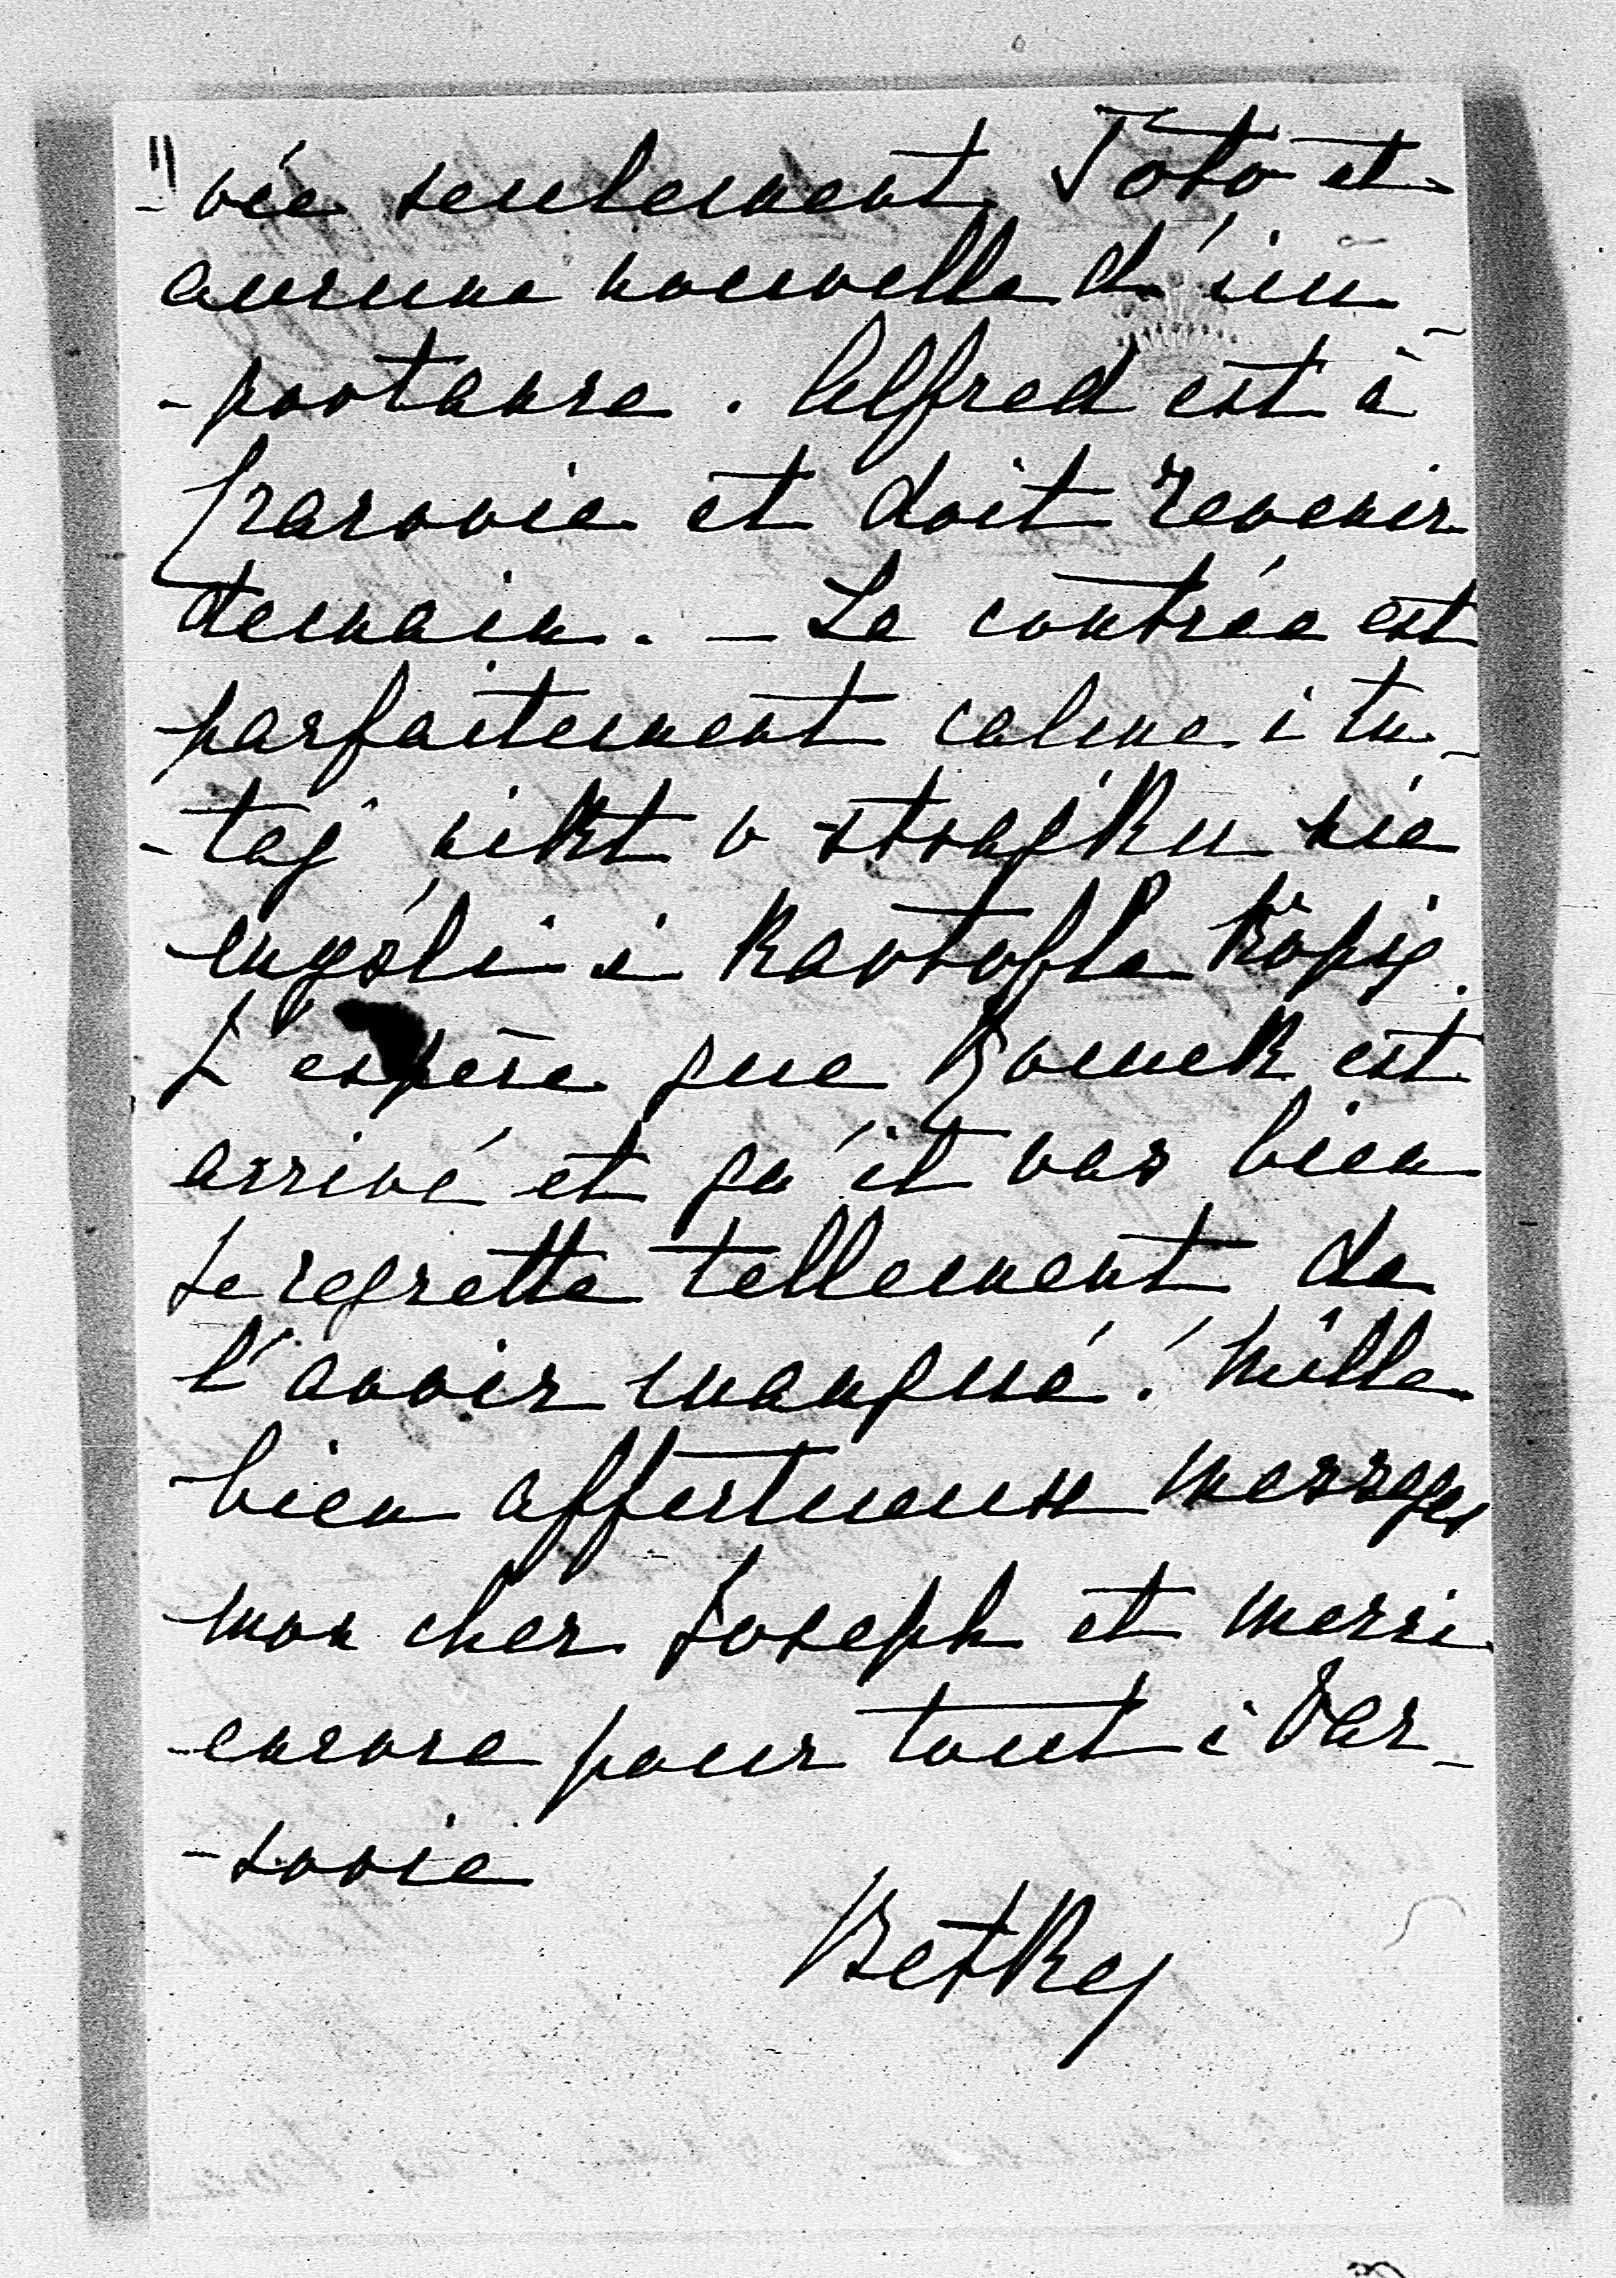 -vée seulement Toto et
aucune nouvelle d'im-
-portance. Alfred est à
Cracovie et doit revenir
demain. - La contrée est
parfaitement calme i tu-
-taj nikt o strajku nie
myśli i kartofle kopią.
J'espère que Romek est
arrivé et qu'il va bien
Je regrette tellement de
l'avoir manqué! Mille
bien affectueux messages
mon cher Joseph et merci
encore pour tout à Var-
-sovie
Betka